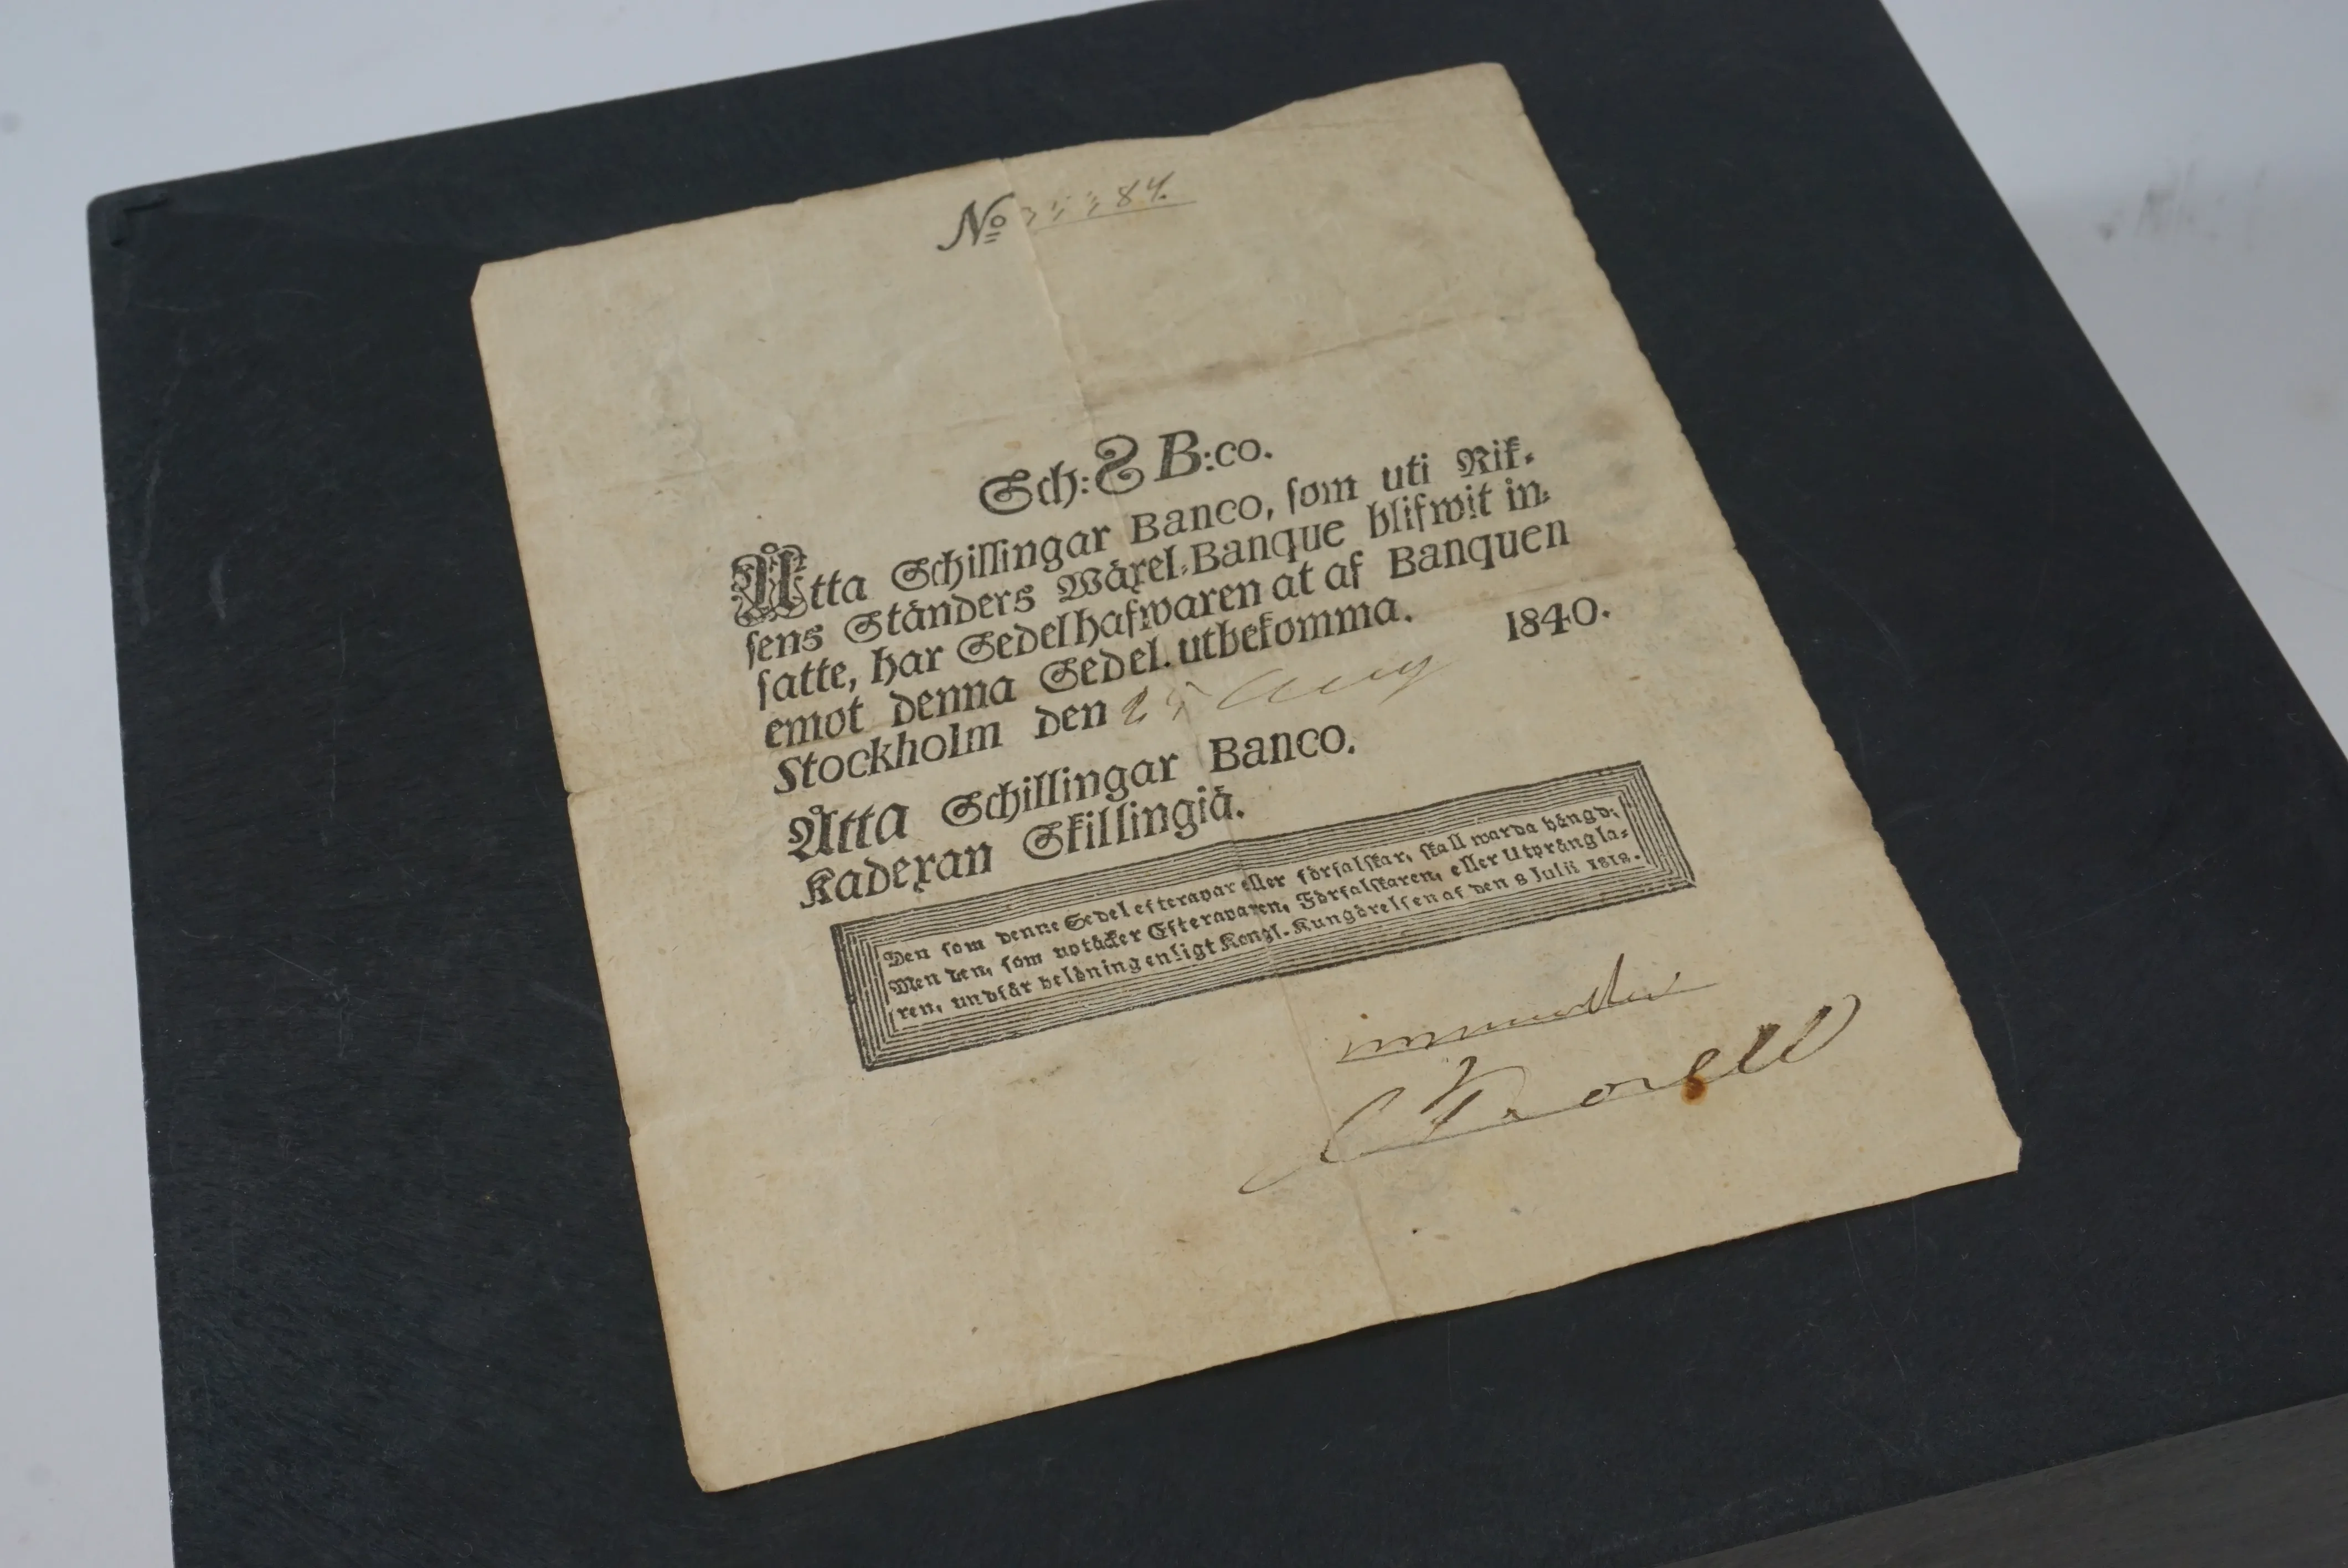 No 84.
Sch: 8 B:co.
Åtta Schillingar Banco, som uti Rik-
sens Ständers Wäxel-Banque blifwit in-
satte, har Sedelhafwaren at af Banquen
emot denna Sedel utbekomma.
Stockholm den 25 Aug 1840.
Åtta Schillingar Banco.
Kadexan Skillingiä.
Den som denne Sedel efterapar eller förfalskar, skall warda hängd;
Men den, som uptäcker Efteraparen, Förfalskaren, eller Utprångla-
ren, undfår belöning enligt Kongl. Kungörelsen af den 8 Julii 1818.